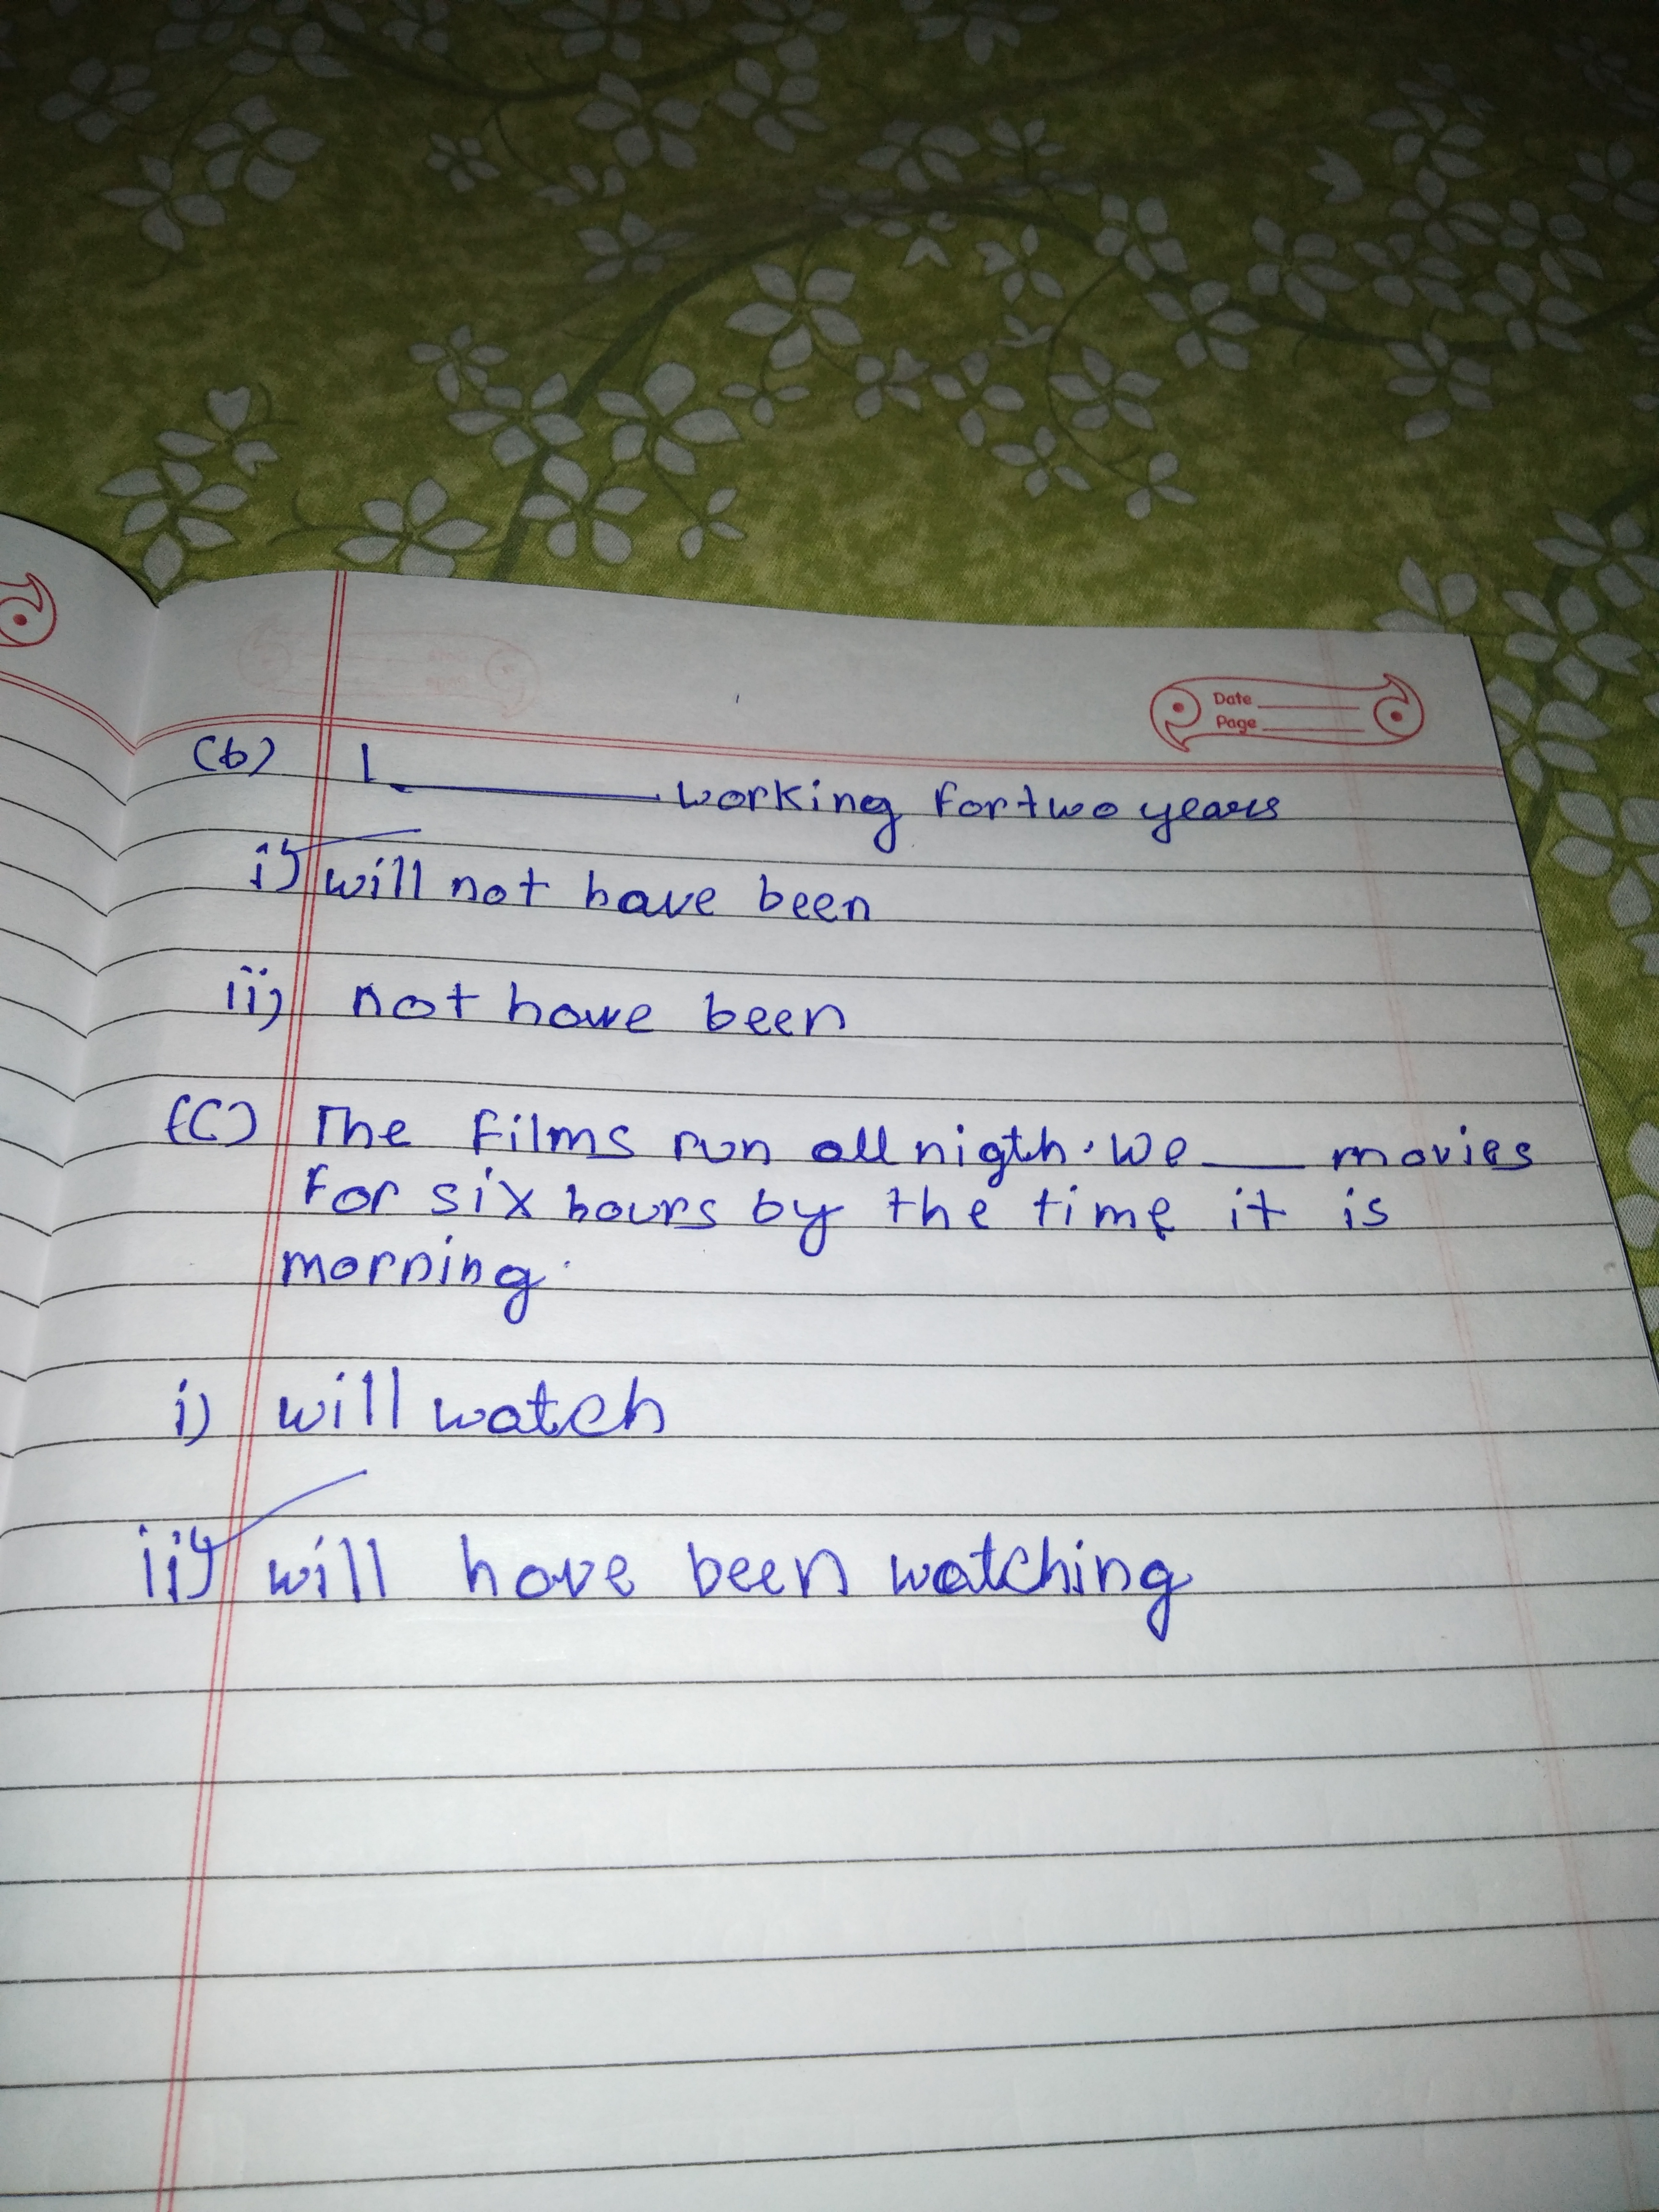 Date
Page
(b) I ______ working for two years
i) will not have been
ii) not have been
(C) The films run all nigth. We ___ movies
for six hours by the time it is
morning.
i) will watch
ii) will have been watching